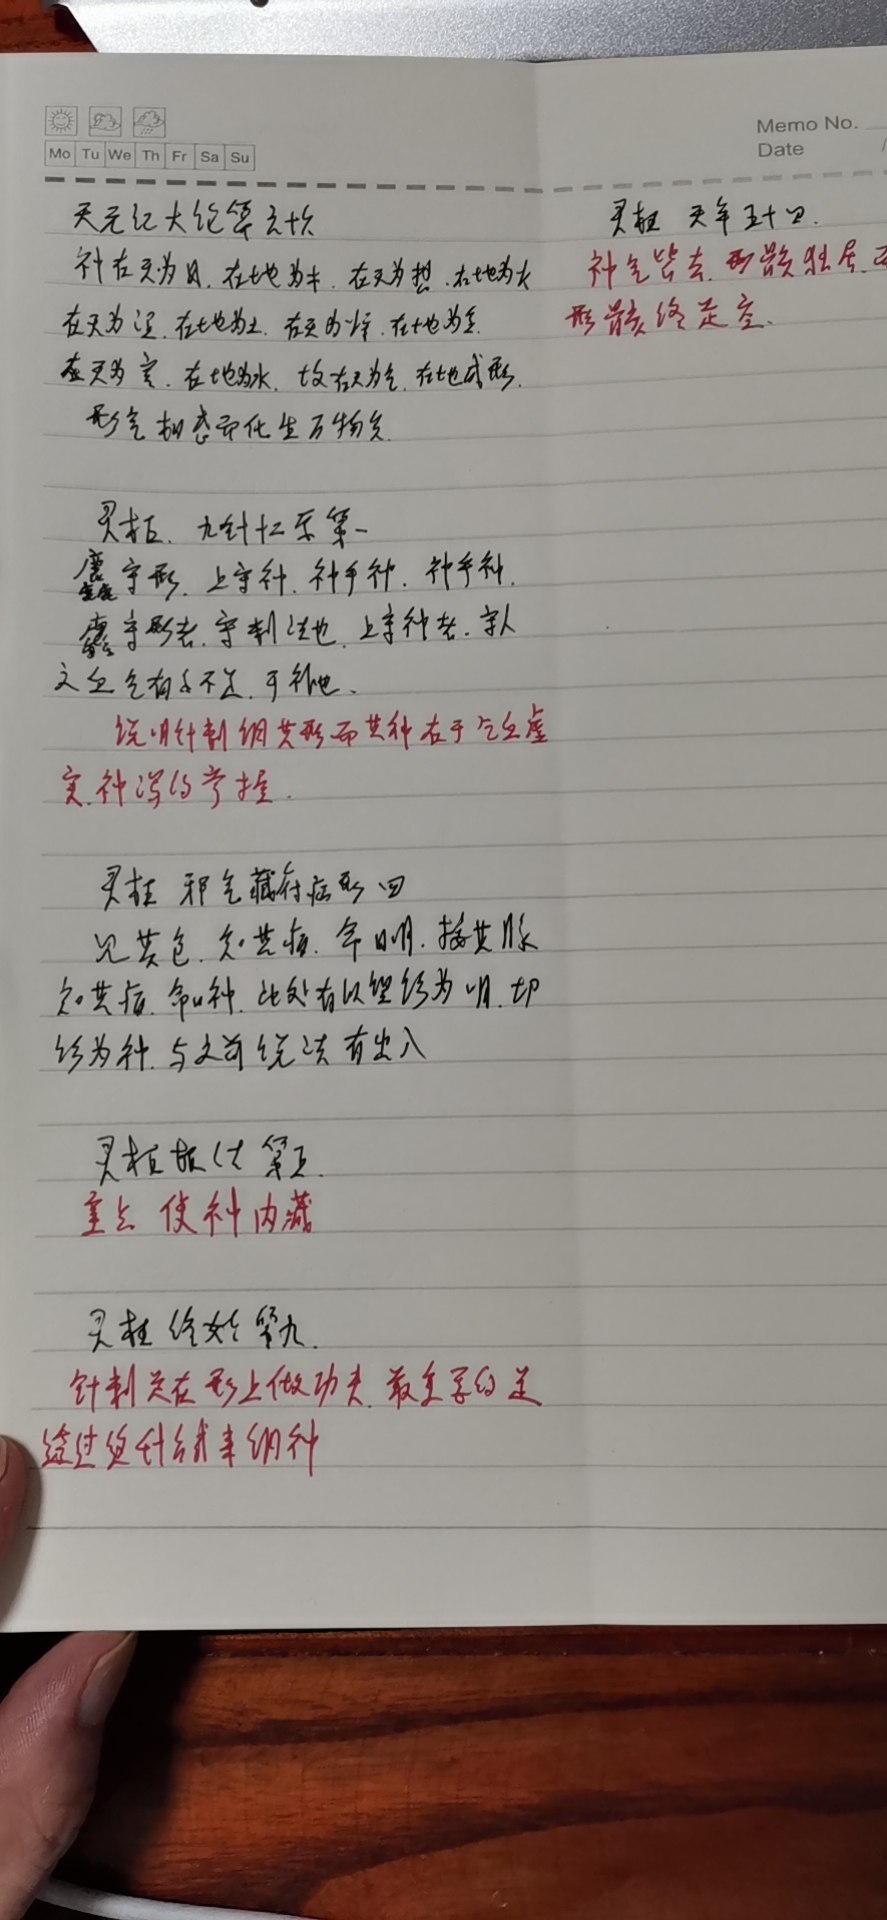 Mo Tu We Th Fr Sa Su
Memo No.
Date /
天元纪大论第六十六
神在天为风.在地为木.在天为热.在地为火
在天为湿.在地为土.在天为燥.在地为金.
在天为寒.在地为水.故在天为气.在地成形.
形气相感而化生万物矣.
灵枢.九针十二原第一
麤守形.上守神.神乎神.神乎神.
麤守形者.守刺法也.上守神者.守人
之血气有余不足.可补也.
说明针刺调其形而其神在于气血虚
实.补泻的掌握.
灵枢 邪气藏府病形 四
见其色.知其病.命曰明.按其脉
知其病.命曰神.此处有以望诊为明.切
诊为神.与之前说法有出入
灵枢 根结 第五.
重点 使神内藏
灵枢 终始 第九.
针刺是在形上做功夫.最重要的是
经过 来调神
灵枢 天年五十四.
神气皆去.形骸独居.而
形骸终是空.